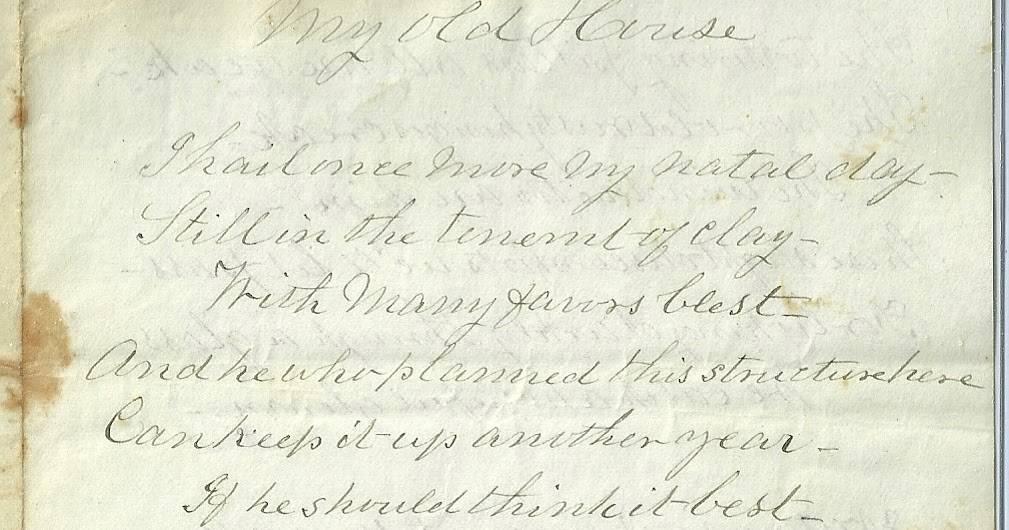 My Old House
I hail once more my natal day -
Still in the tenemt of clay -
With Many favors blest -
And he who planned this structure here
Can keep it up another year -
If he should think it best -